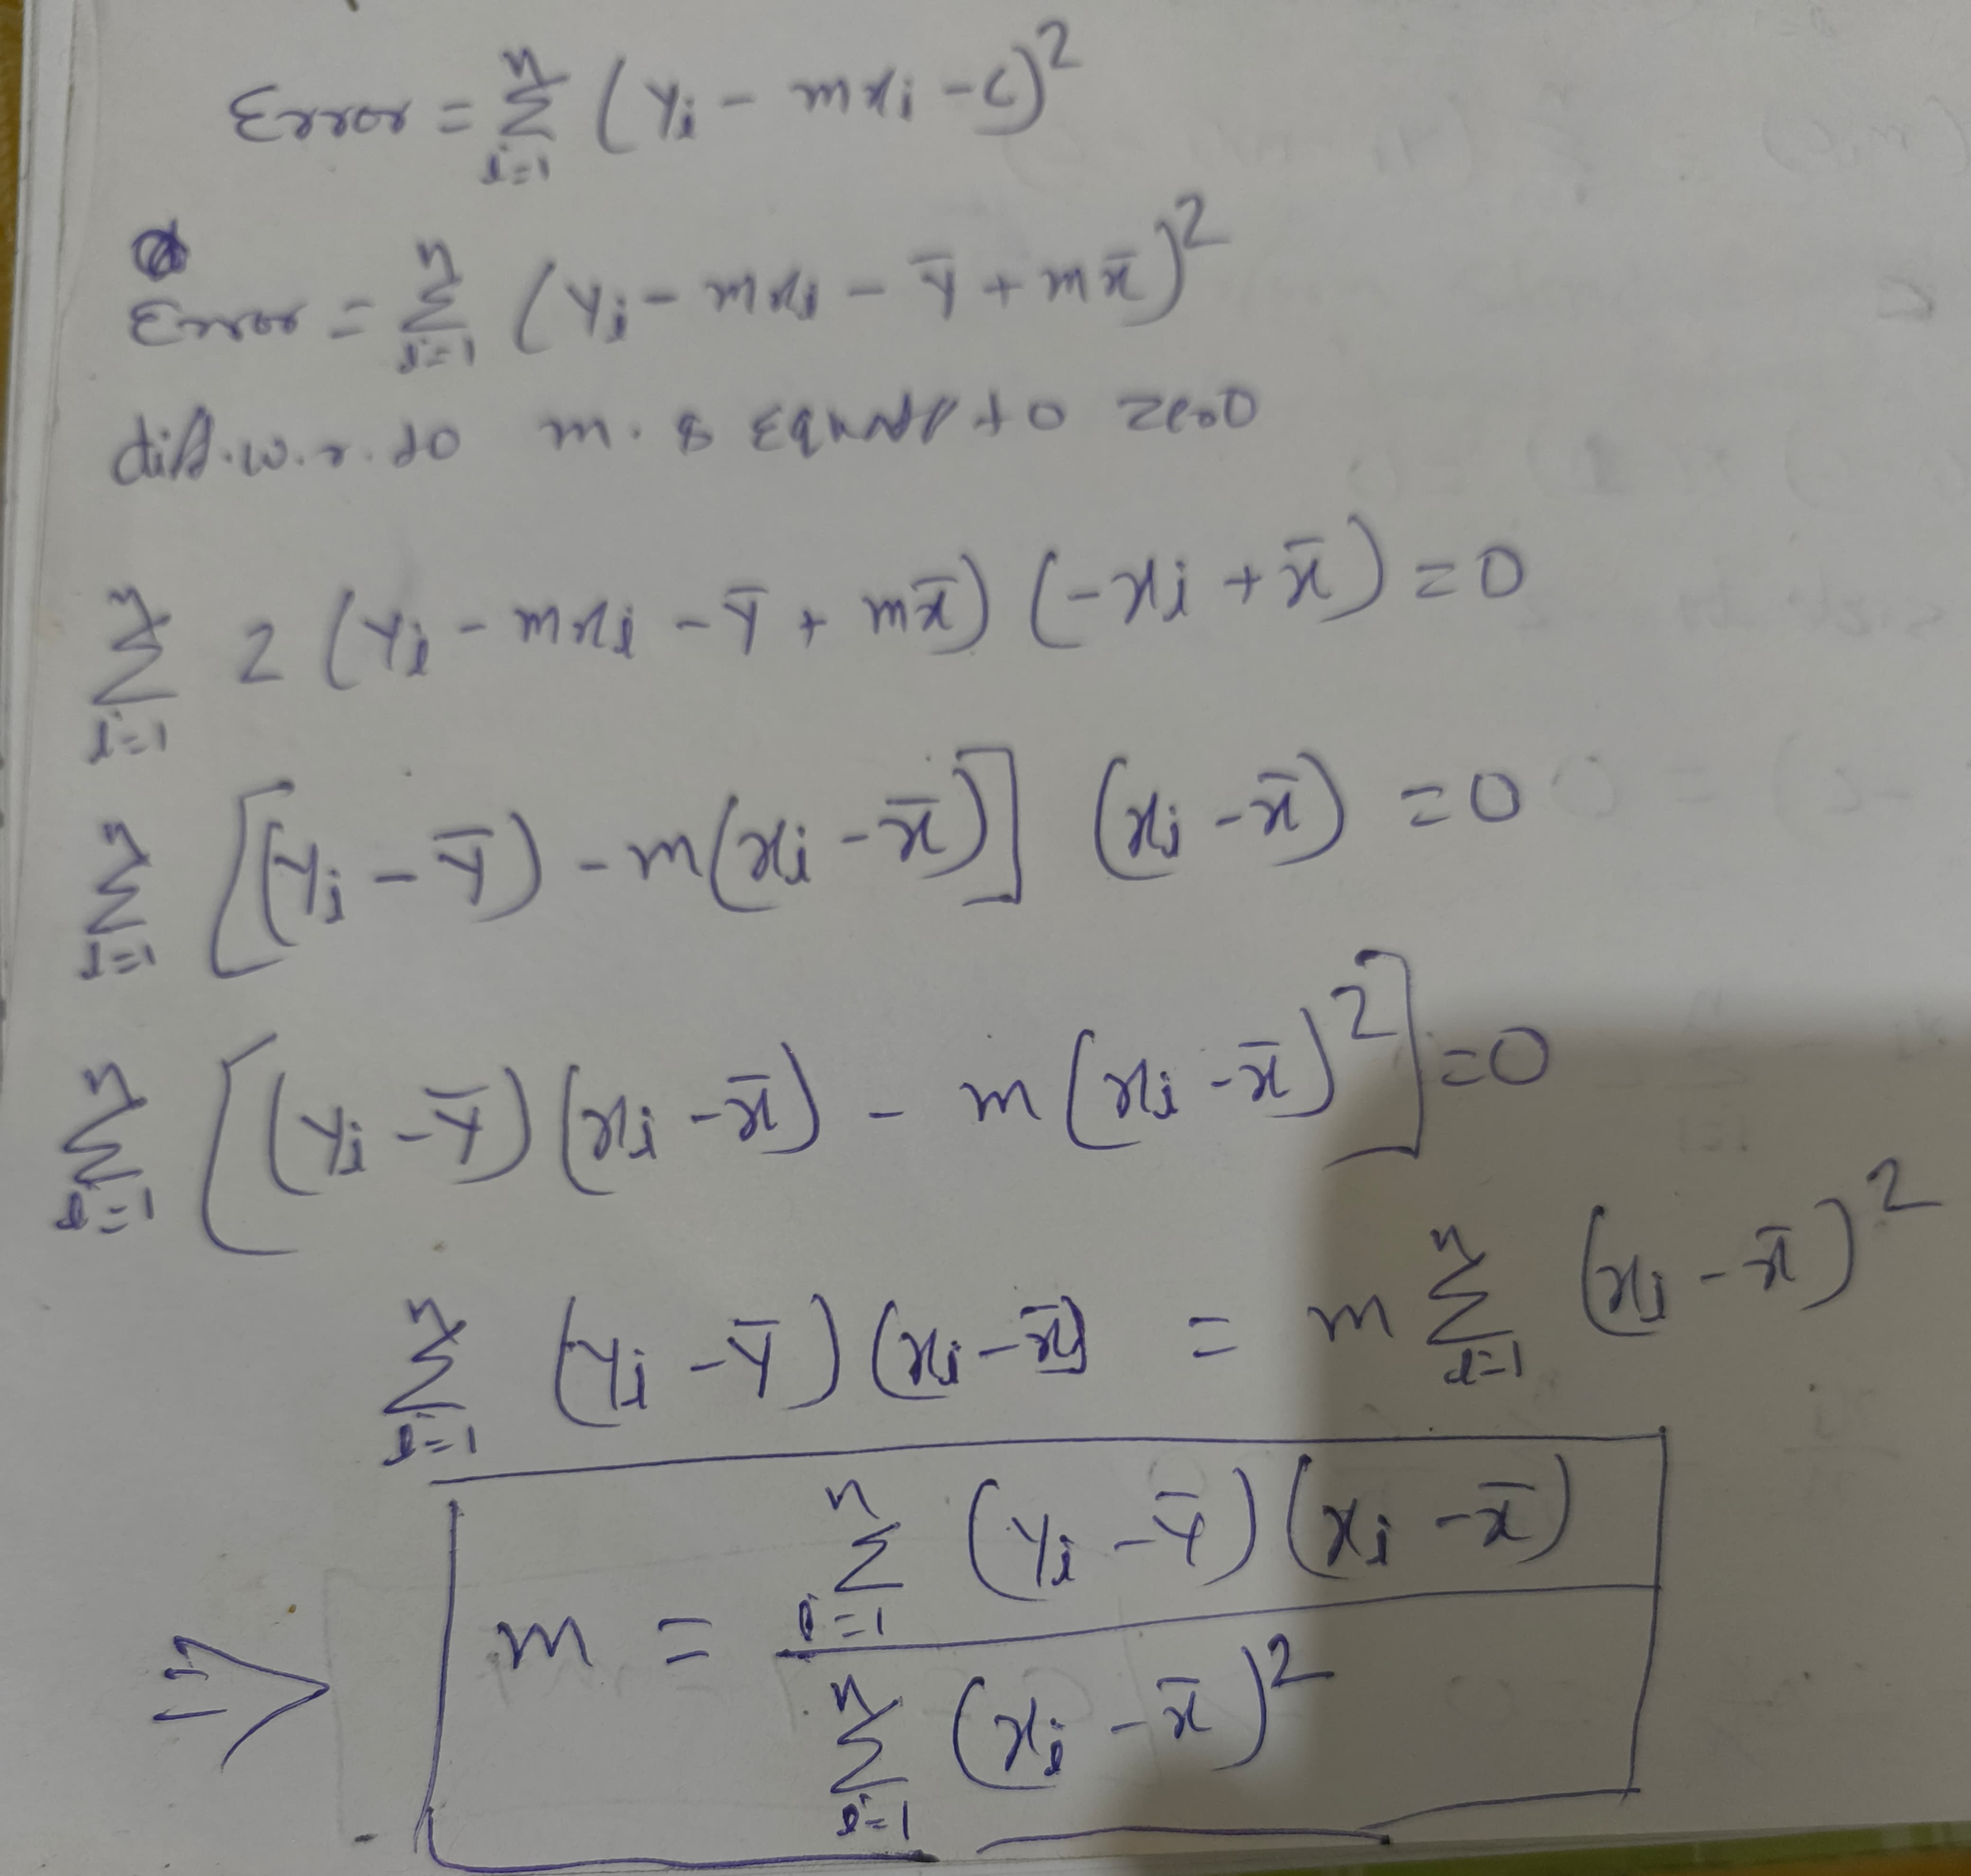 Error = Σ_{i=1}^{n} (Yi - mxi - c)²
Error = Σ_{i=1}^{n} (Yi - mxi - Ȳ + mx̄)²
diff. w. r. to m. & equate to zero
Σ_{i=1}^{n} 2 (Yi - mxi - Ȳ + mx̄) (-xi + x̄) = 0
Σ_{i=1}^{n} [(Yi - Ȳ) - m(xi - x̄)] (xi - x̄) = 0
Σ_{i=1}^{n} [(Yi - Ȳ)(xi - x̄) - m(xi - x̄)²] = 0
Σ_{i=1}^{n} (Yi - Ȳ)(xi - x̄) = m Σ_{i=1}^{n} (xi - x̄)²
Σ_{i=1}^{n} (Yi - Ȳ)(xi - x̄)
⇒ m =
Σ_{i=1}^{n} (xi - x̄)²